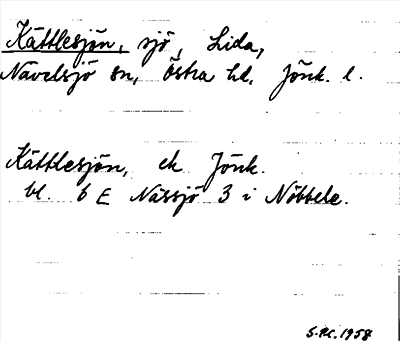 Kättlesjön, sjö, Lida,
Navelsjö sn, Östra hd. Jönk. l.
Kättlesjön, ek Jönk.
bl. 6 E Nässjö 3 i Nöbbele.
S.PC. 1958